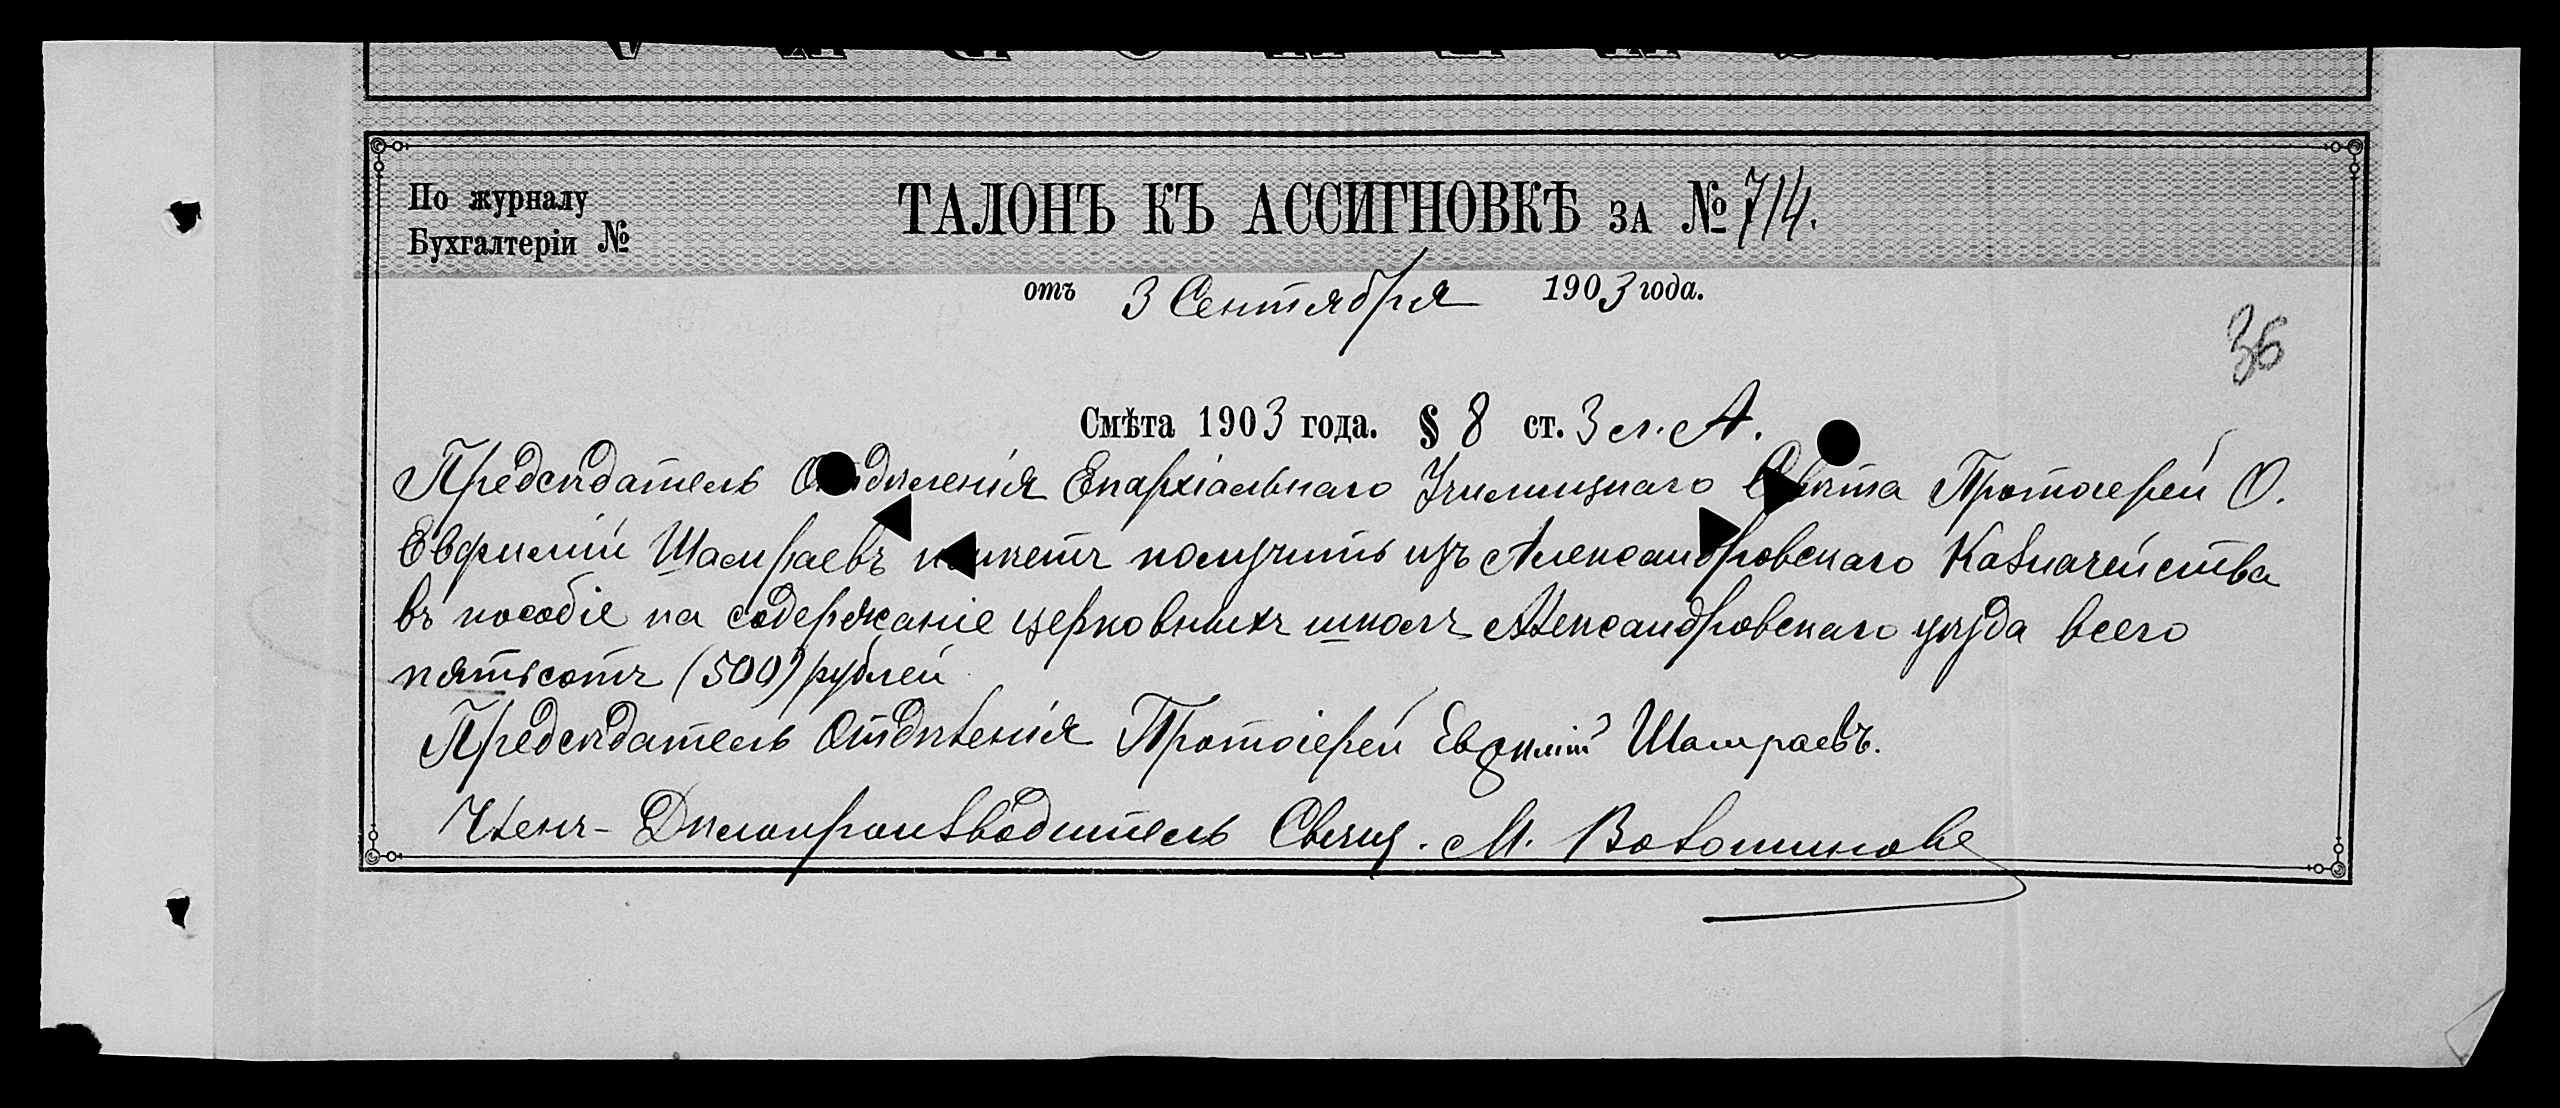 По журналу
Бухгалтеріи №
ТАЛОНЪ КЪ АССИГНОВКѢ ЗА № 714.
отъ 3 Сентября 1903 года.
36
Смѣта 1903 года. § 8 ст. 3 л. А.
Предсѣдатель Отдѣленія Епархіальнаго Училищнаго Совѣта Протоіерей О.
Евфимій Шамраевъ можетъ получить изъ Александровскаго Казначейства
въ пособіе на содержаніе церковныхъ школъ Александровскаго уѣзда всего
пятьсотъ (500) рублей
Предсѣдатель Отдѣленія Протоіерей Евфимій Шамраевъ.
Членъ-Дѣлопроизводитель Свящ. М.